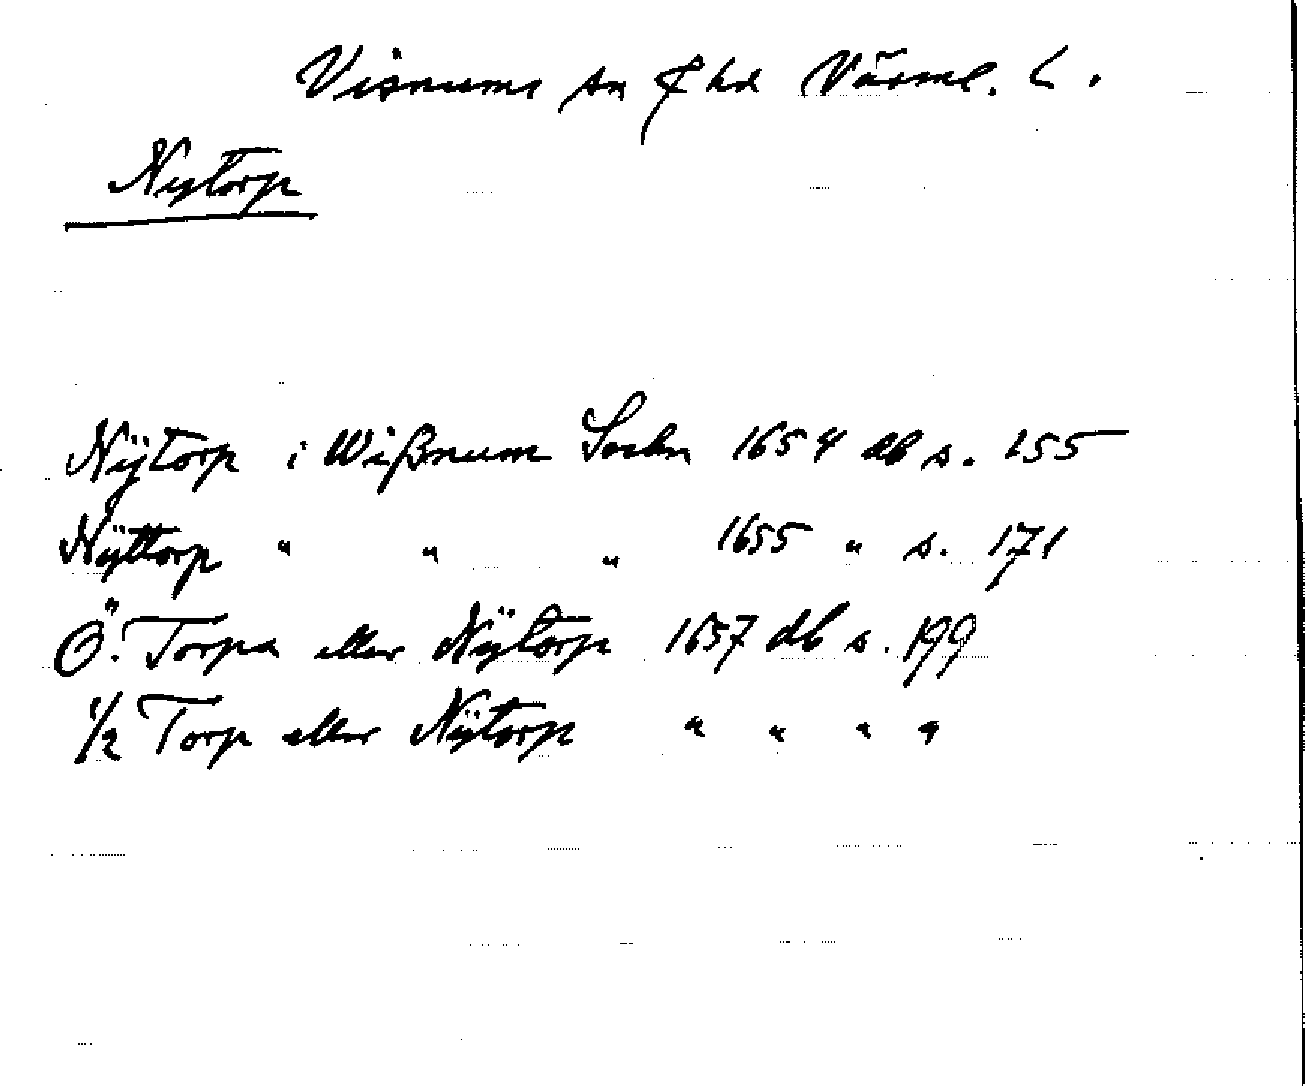 Visnums sn ⨍ hd Värml. L.
Nytorp
Nÿtorp i Wißnum Sochn 1654 db s. 155
Nÿttorp " " " 1655 " s. 171
Ö. Torpa eller Nÿtorp 1657 db s. 199
1/2 Torp eller Nÿtorp " " " "